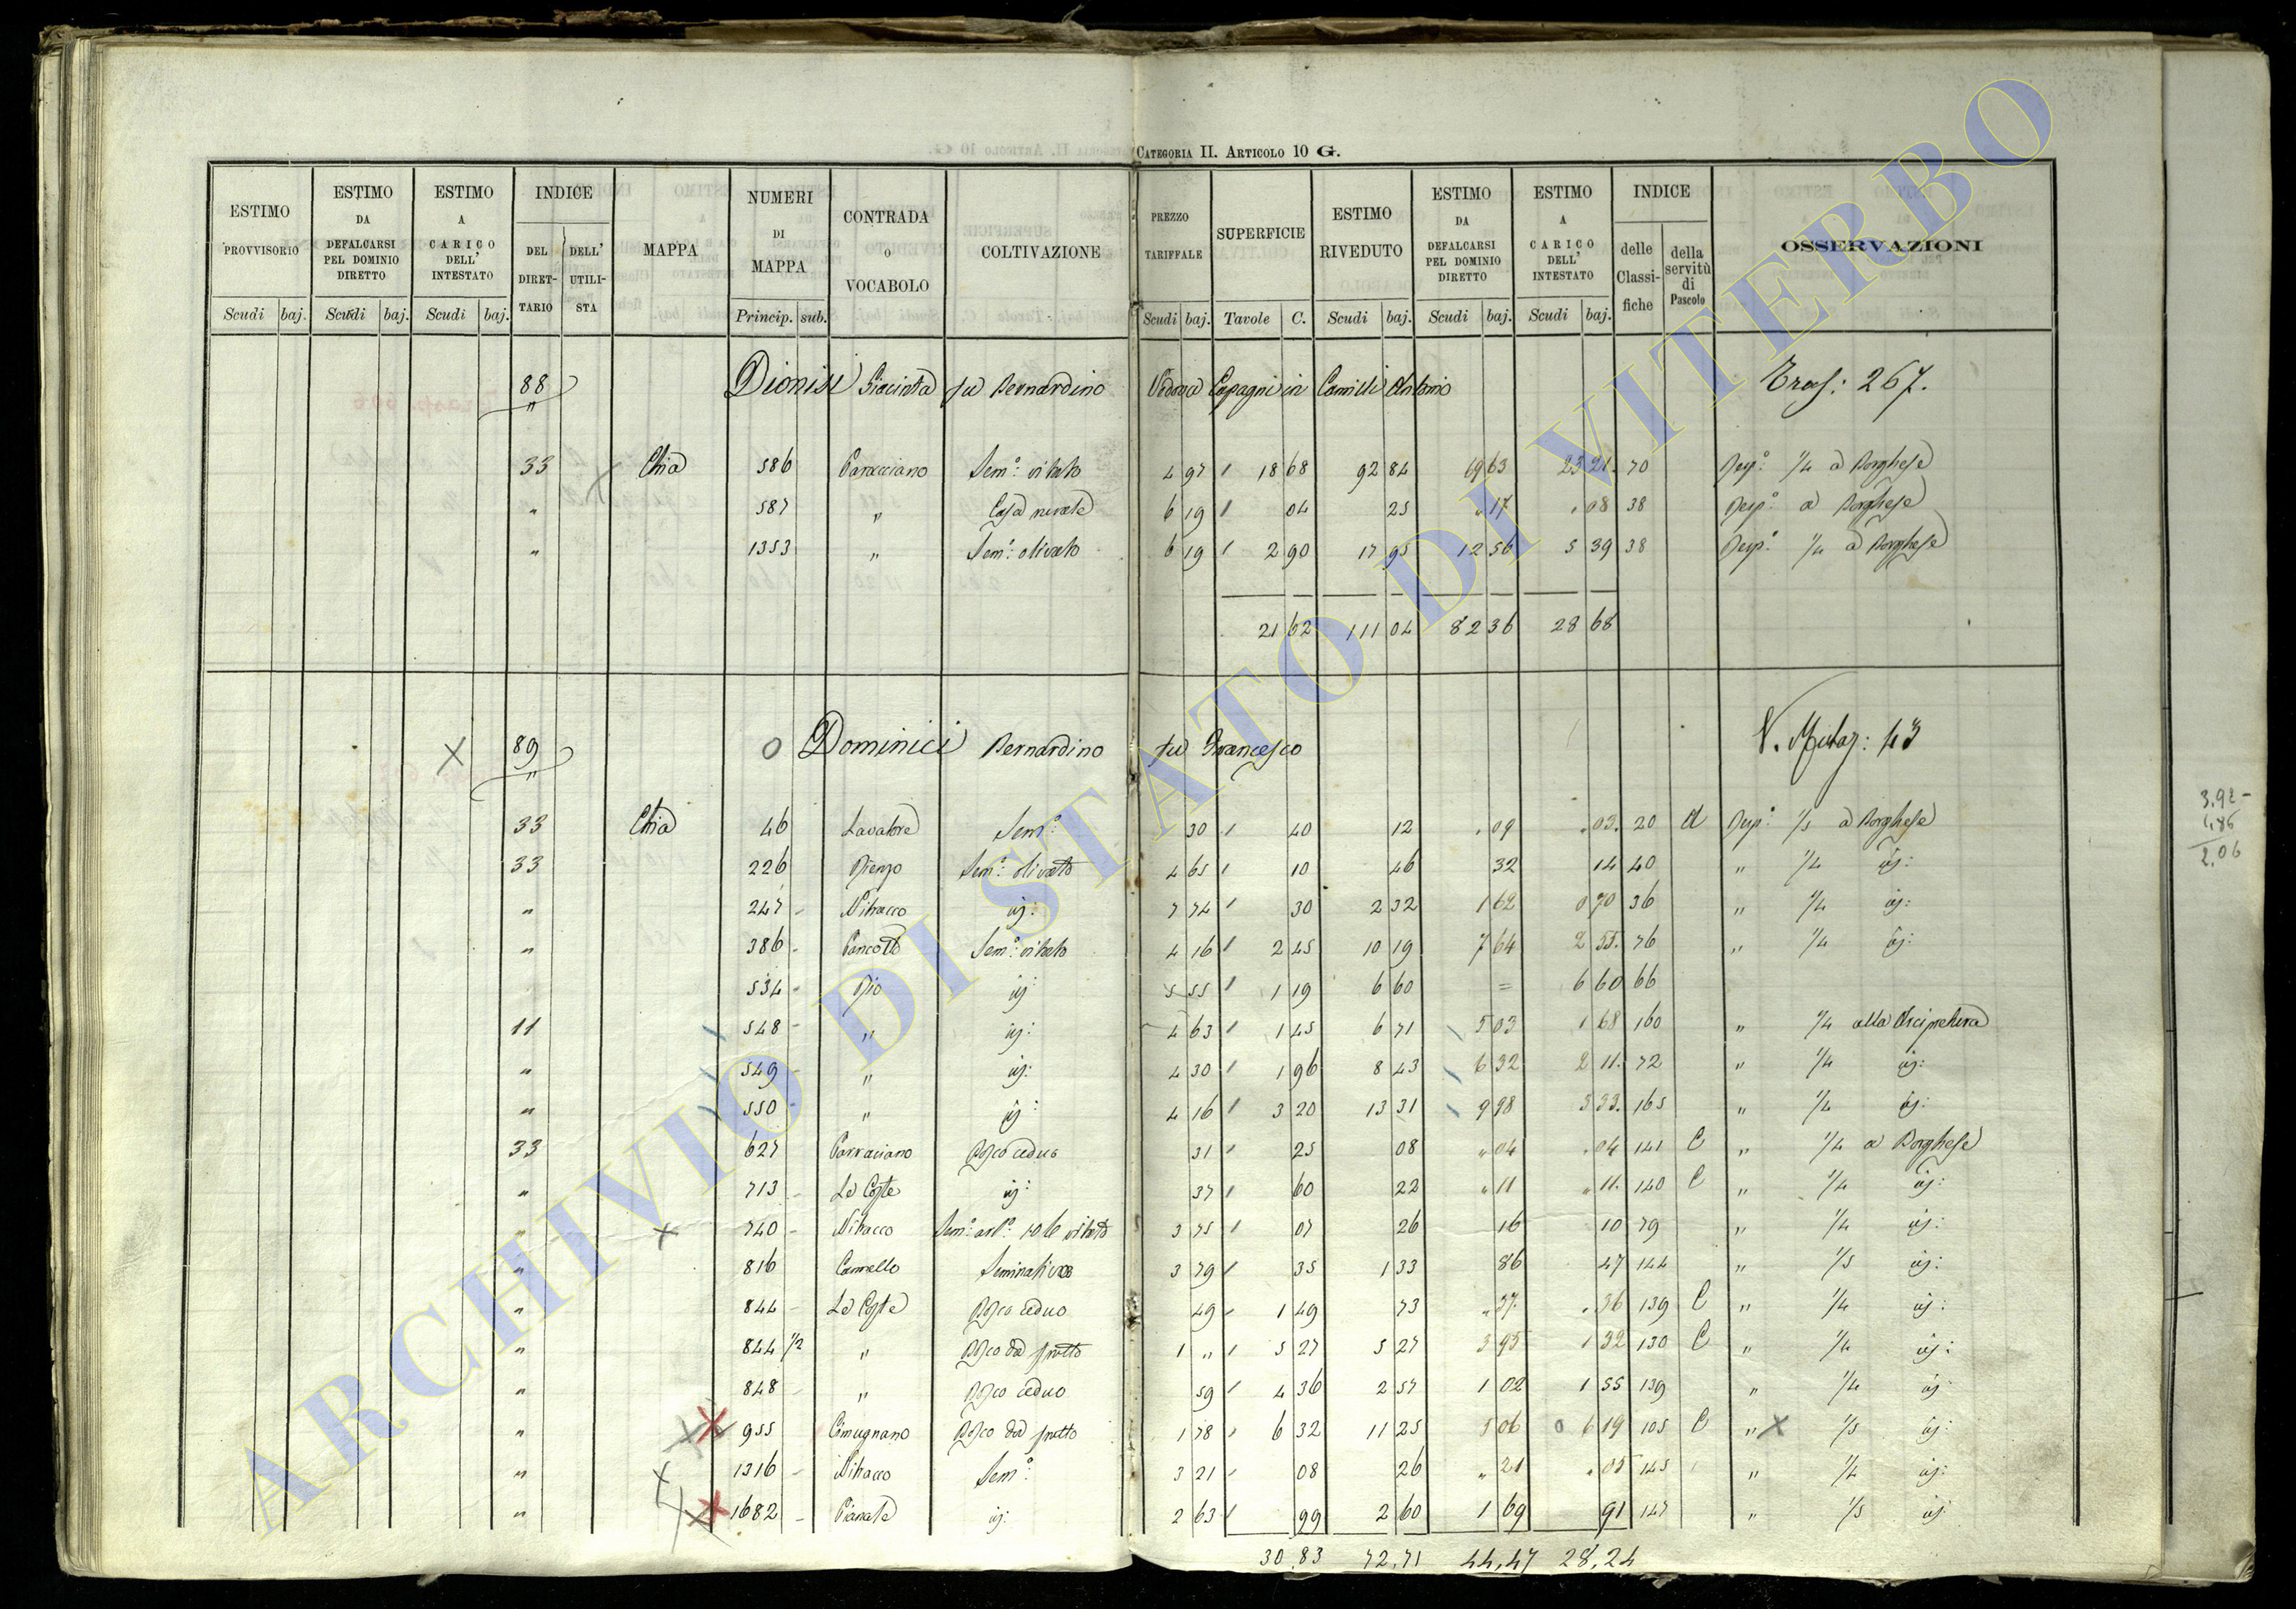 CATEGORIA II. ARTICOLO 10 G.
ESTIMO PROVVISORIO Scudi baj. ESTIMO DA DEFALCARSI PEL DOMINIO DIRETTO Scudi baj. ESTIMO A CARICO DELL' INTESTATO Scudi baj. INDICE DEL DIRETTARIO DELL' UTILISTA MAPPA NUMERI DI MAPPA Princip. sub. CONTRADA O VOCABOLO COLTIVAZIONE PREZZO TARIFFALE Scudi baj. SUPERFICIE Tavole C. ESTIMO RIVEDUTO Scudi baj. ESTIMO DA DEFALCARSI PEL DOMINIO DIRETTO Scudi baj. ESTIMO A CARICO DELL' INTESTATO Scudi baj. INDICE delle Classifiche della servitù di Pascolo OSSERVAZIONI
88 Dionisi Giacinta fu Bernardino Vedova in Camilli Antonio Tras: 267.
33 Chia 586 Sem.° vitato 4 97 18 68 92 84 69 63 23 21 70 Risp.° 1/4 a Borghese
" 587 " Casa 6 19 04 25 " 17 " 08 38 Risp.° a Borghese
" 1353 " Sem.° olivato 6 19 2 90 17 95 12 56 5 39 38 Risp.° 1/4 a Borghese
21 62 111 04 82 36 28 68
89 Dominici Bernardino fu Francesco 43
33 Chia 46 Lavatore Sem.° 30 40 12 " 09 " 03 20 Risp.° 1/5 a Borghese
33 226 Sem.° olivato 4 65 10 46 32 14 40 " 1/4 id:
" 247 id: 7 74 30 2 32 1 62 0 70 36 " 1/4 id:
" 386 Sem.° vitato 4 16 2 45 10 19 7 64 2 55 76 " 1/4 id:
534 Rio id: 5 55 1 19 6 60 = 6 60 66
11 548 " id: 4 63 1 45 6 71 5 03 1 68 160 " 1/4 alla Arcipretura
" 549 " id: 4 30 1 96 8 43 6 32 2 11 72 " 1/4 id:
" 550 " id: 4 16 3 20 13 31 9 98 3 33 165 " 1/4 id:
33 627 Parraciano Bosco ceduo 31 25 08 " 04 " 04 141 C " 1/4 a Borghese
" 713 Le Coste id: 37 60 22 " 11 " 11 140 C " 1/4 id:
" 740 vitato 3 75 07 26 16 10 79 " 1/4 id:
" 816 Cannello Seminativo 3 79 35 1 33 86 47 144 " 1/5 id:
" 844 Le Coste Bosco ceduo 49 1 49 73 " 37 " 36 139 C " 1/4 id:
" 844 1/2 " Bosco da frutto 1 " 5 27 5 27 3 95 1 32 130 C " 1/4 id:
" 848 " Bosco ceduo 59 4 36 2 57 1 02 1 55 139 " 1/4 id:
" 955 Cimugnano Bosco da frutto 1 78 6 32 11 25 5 06 6 19 105 C " 1/5 id:
" 1316 Sem.° 3 21 08 26 " 21 " 05 145 " 1/4 id:
" 1682 Pianale id: 2 63 99 2 60 1 69 91 147 " 1/5 id:
30.83 72.71 44,47 28,24
3.92
1,86
2.06
ARCHIVIO DI STATO DI VITERBO